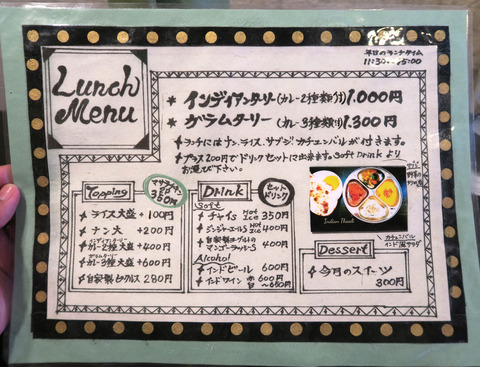 Lunch
Menu
平日のランチタイム
11:30~15:00
* インディアンターリー(カレー2種類付) 1.000円
* グラムターリー(カレー3種類付) 1.300円
ターリーにはナン、ライス、サブジ、カチュンバルが付きます。
プラス200円でドリンクセットに出来ます。Soft Drink より
お選び下さい。
Topping
350円
ライス大盛 +100円
ナン大 +200円
インディアンターリー
カレー2種大盛 +400円
グラムターリー
カレー3種大盛 +600円
自家製ピクルス 280円
Drink
セットドリンク
Soft
チャイ HOT ICE 350円
ジンジャーエール HOT ICE 400円
自家製ヨーグルトの
マンゴーラッシー 400円
Alcohol
インドビール 600円
インドワイン 赤 600円
白 ~650円
Indian Thaali
カチュンバル
インド風サラダ
Dessert
今月のスイーツ
300円